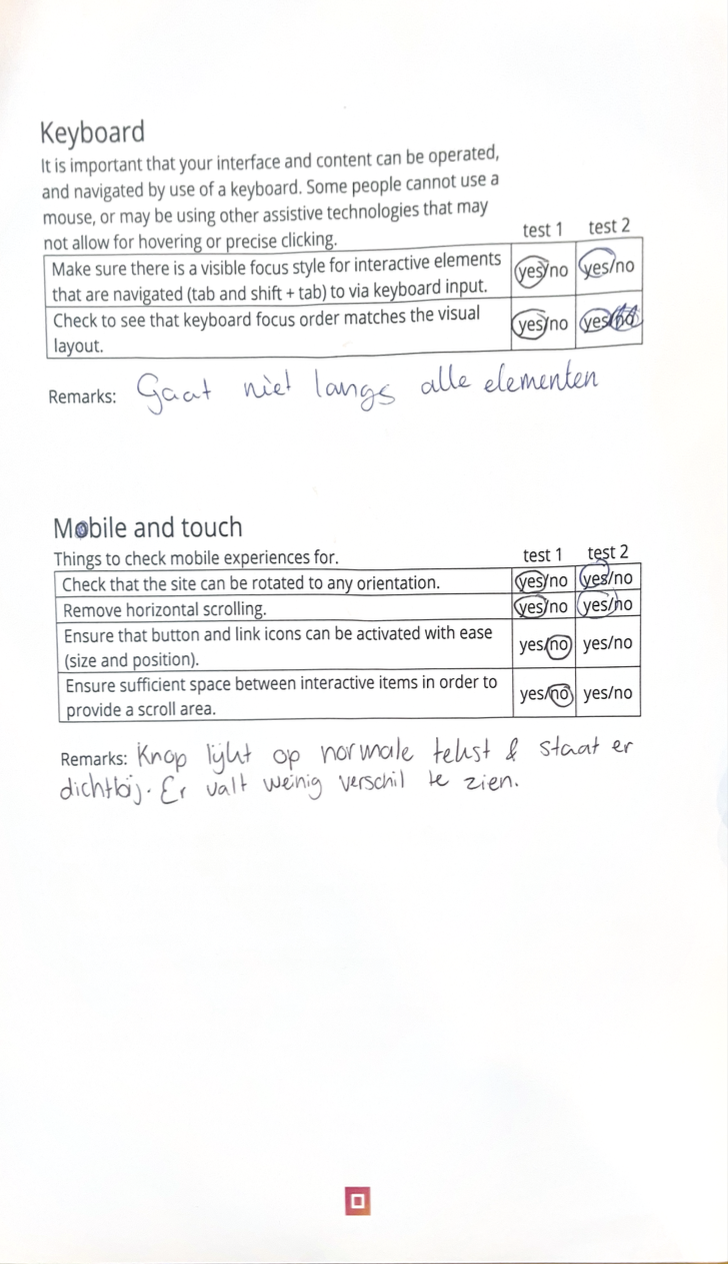 Keyboard
It is important that your interface and content can be operated,
and navigated by use of a keyboard. Some people cannot use a
mouse, or may be using other assistive technologies that may
not allow for hovering or precise clicking.
test 1 test 2
Make sure there is a visible focus style for interactive elements
that are navigated (tab and shift + tab) to via keyboard input.
yes/no yes/no
Check to see that keyboard focus order matches the visual
layout.
yes/no yes/no
Remarks: Gaat niet langs alle elementen
Mobile and touch
Things to check mobile experiences for. test 1 test 2
Check that the site can be rotated to any orientation. yes/no yes/no
Remove horizontal scrolling. yes/no yes/no
Ensure that button and link icons can be activated with ease
(size and position).
yes/no yes/no
Ensure sufficient space between interactive items in order to
provide a scroll area.
yes/no yes/no
Remarks: Knop lijkt op normale tekst & staat er
dichtbij. Er valt weinig verschil te zien.